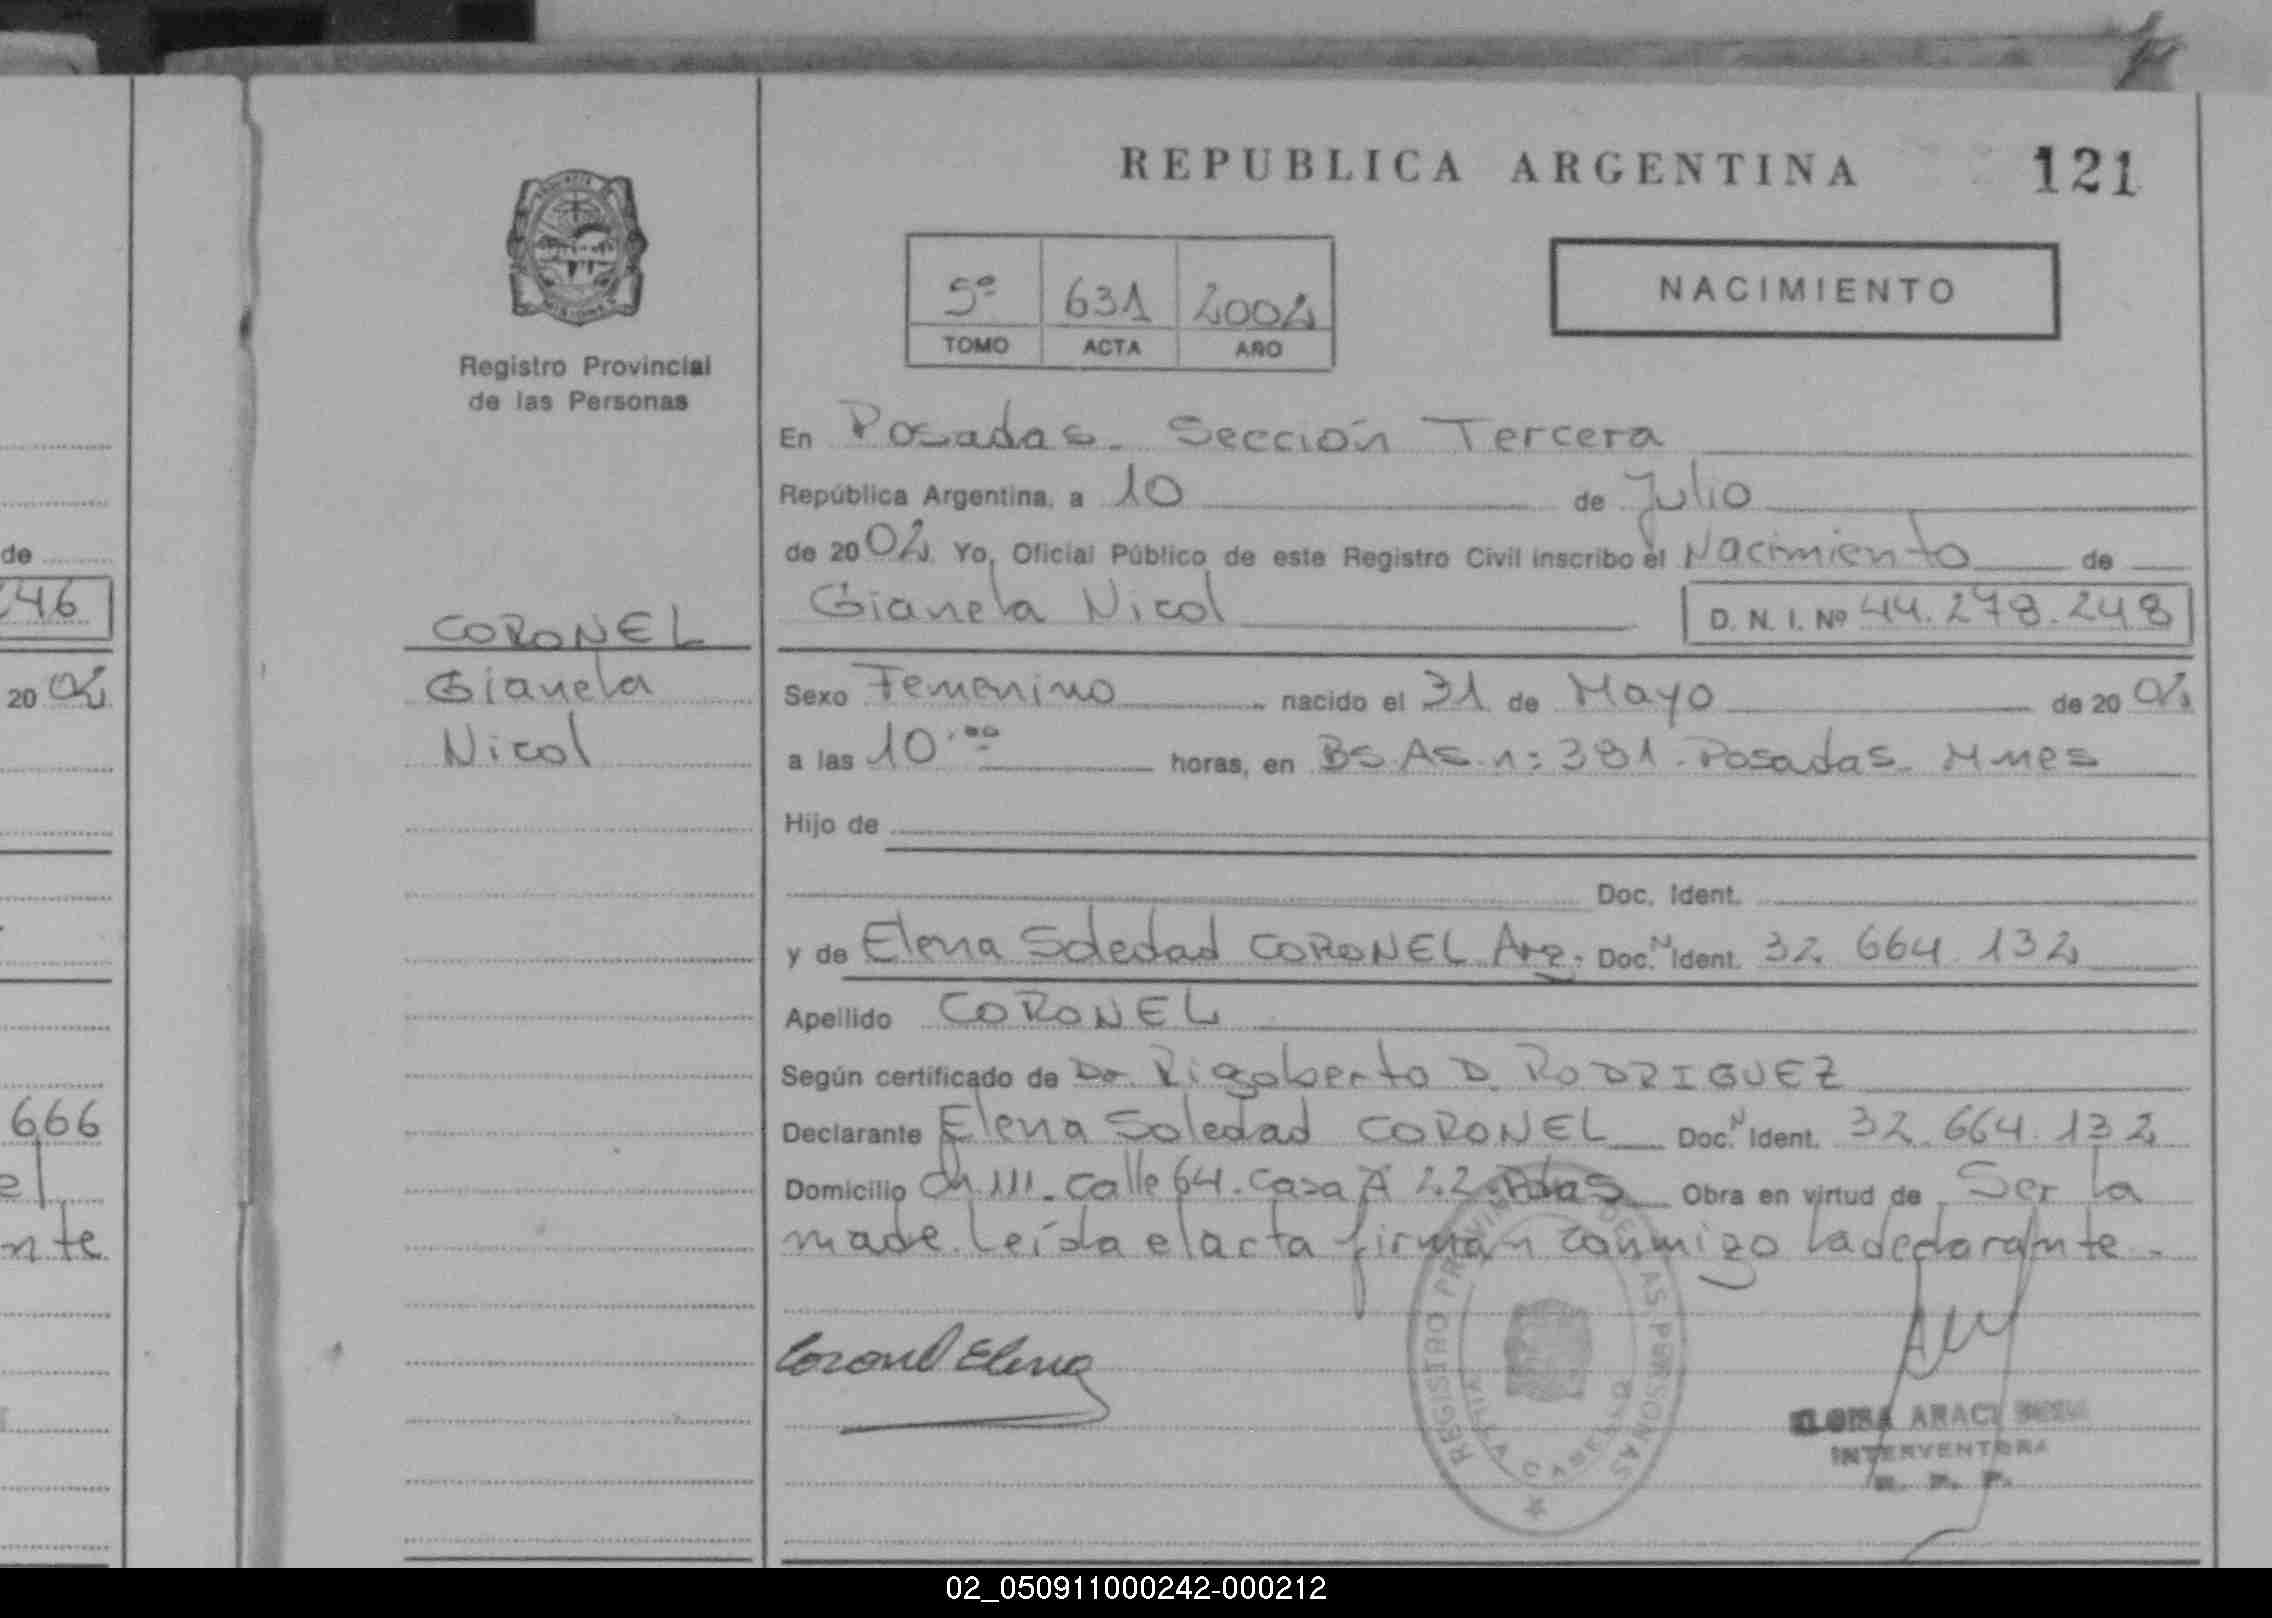 REPUBLICA ARGENTINA
121
5º 631 2002
TOMO ACTA AÑO
NACIMIENTO
Registro Provincial
de las Personas
En Posadas. Sección Tercera
República Argentina, a 10 de Julio
de 2002. Yo, Oficial Público de este Registro Civil inscribo el Nacimiento de
Gianela Nicol D. N. I. Nº 44.278.248
CORONEL
Gianela
Nicol
Sexo Femenino nacido el 31 de Mayo de 2002
a las 10.00 horas, en BS.AS. n: 381. Posadas. Mnes
Hijo de
Doc. Ident.
y de Elena Soledad CORONEL Arg. Doc. N Ident. 32 664 132
Apellido CORONEL
Según certificado de Dr. Rigoberto D. RODRIGUEZ
Declarante Elena Soledad CORONEL Doc. N Ident. 32.664.132
Domicilio Ch 111. Calle 64. Casa A 22. Pdas Obra en virtud de Ser la
madre. Leída el acta firman conmigo la declarante.
Coronel Elena
REGISTRO PROVINCIAL DE LAS PERSONAS
VILLA CABELLO
ARACI
INTERVENTORA
R. P. P.
de
246
20 02
666
el
nte
02_050911000242-000212